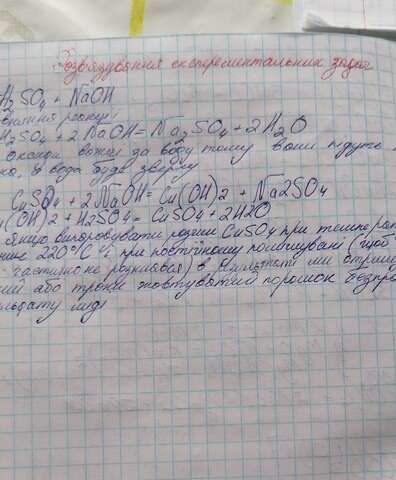 Розвязування експерементальних задач
H2SO4 + NaOH
вняння реакції
H2SO4 + 2 NaOH = Na2SO4 + 2H2O
оксиди важчі за воду тому вони підуть
но, а вода буде зверху
CuSO4 + 2 NaOH = Cu(OH)2 + Na2SO4
(OH)2 + H2SO4 = CuSO4 + 2H2O
якщо випоровувати розчин CuSO4 при температ
220°C і при постійному помішувані (щоб
частино не розпилвся) в результаті ми отрим
ий або трохи жовтуватий порошок безпро
льфату міді